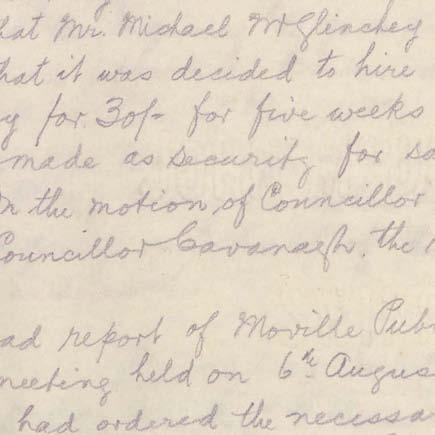 that Mr. Michael McGlinchey
that it was decided to hire
y for 30/- for five weeks
made as security for sa
On the motion of Councillor
Councillor Cavanagh, the
ad report of Moville Pub
meeting held on 6th Augus
had ordered the necessa